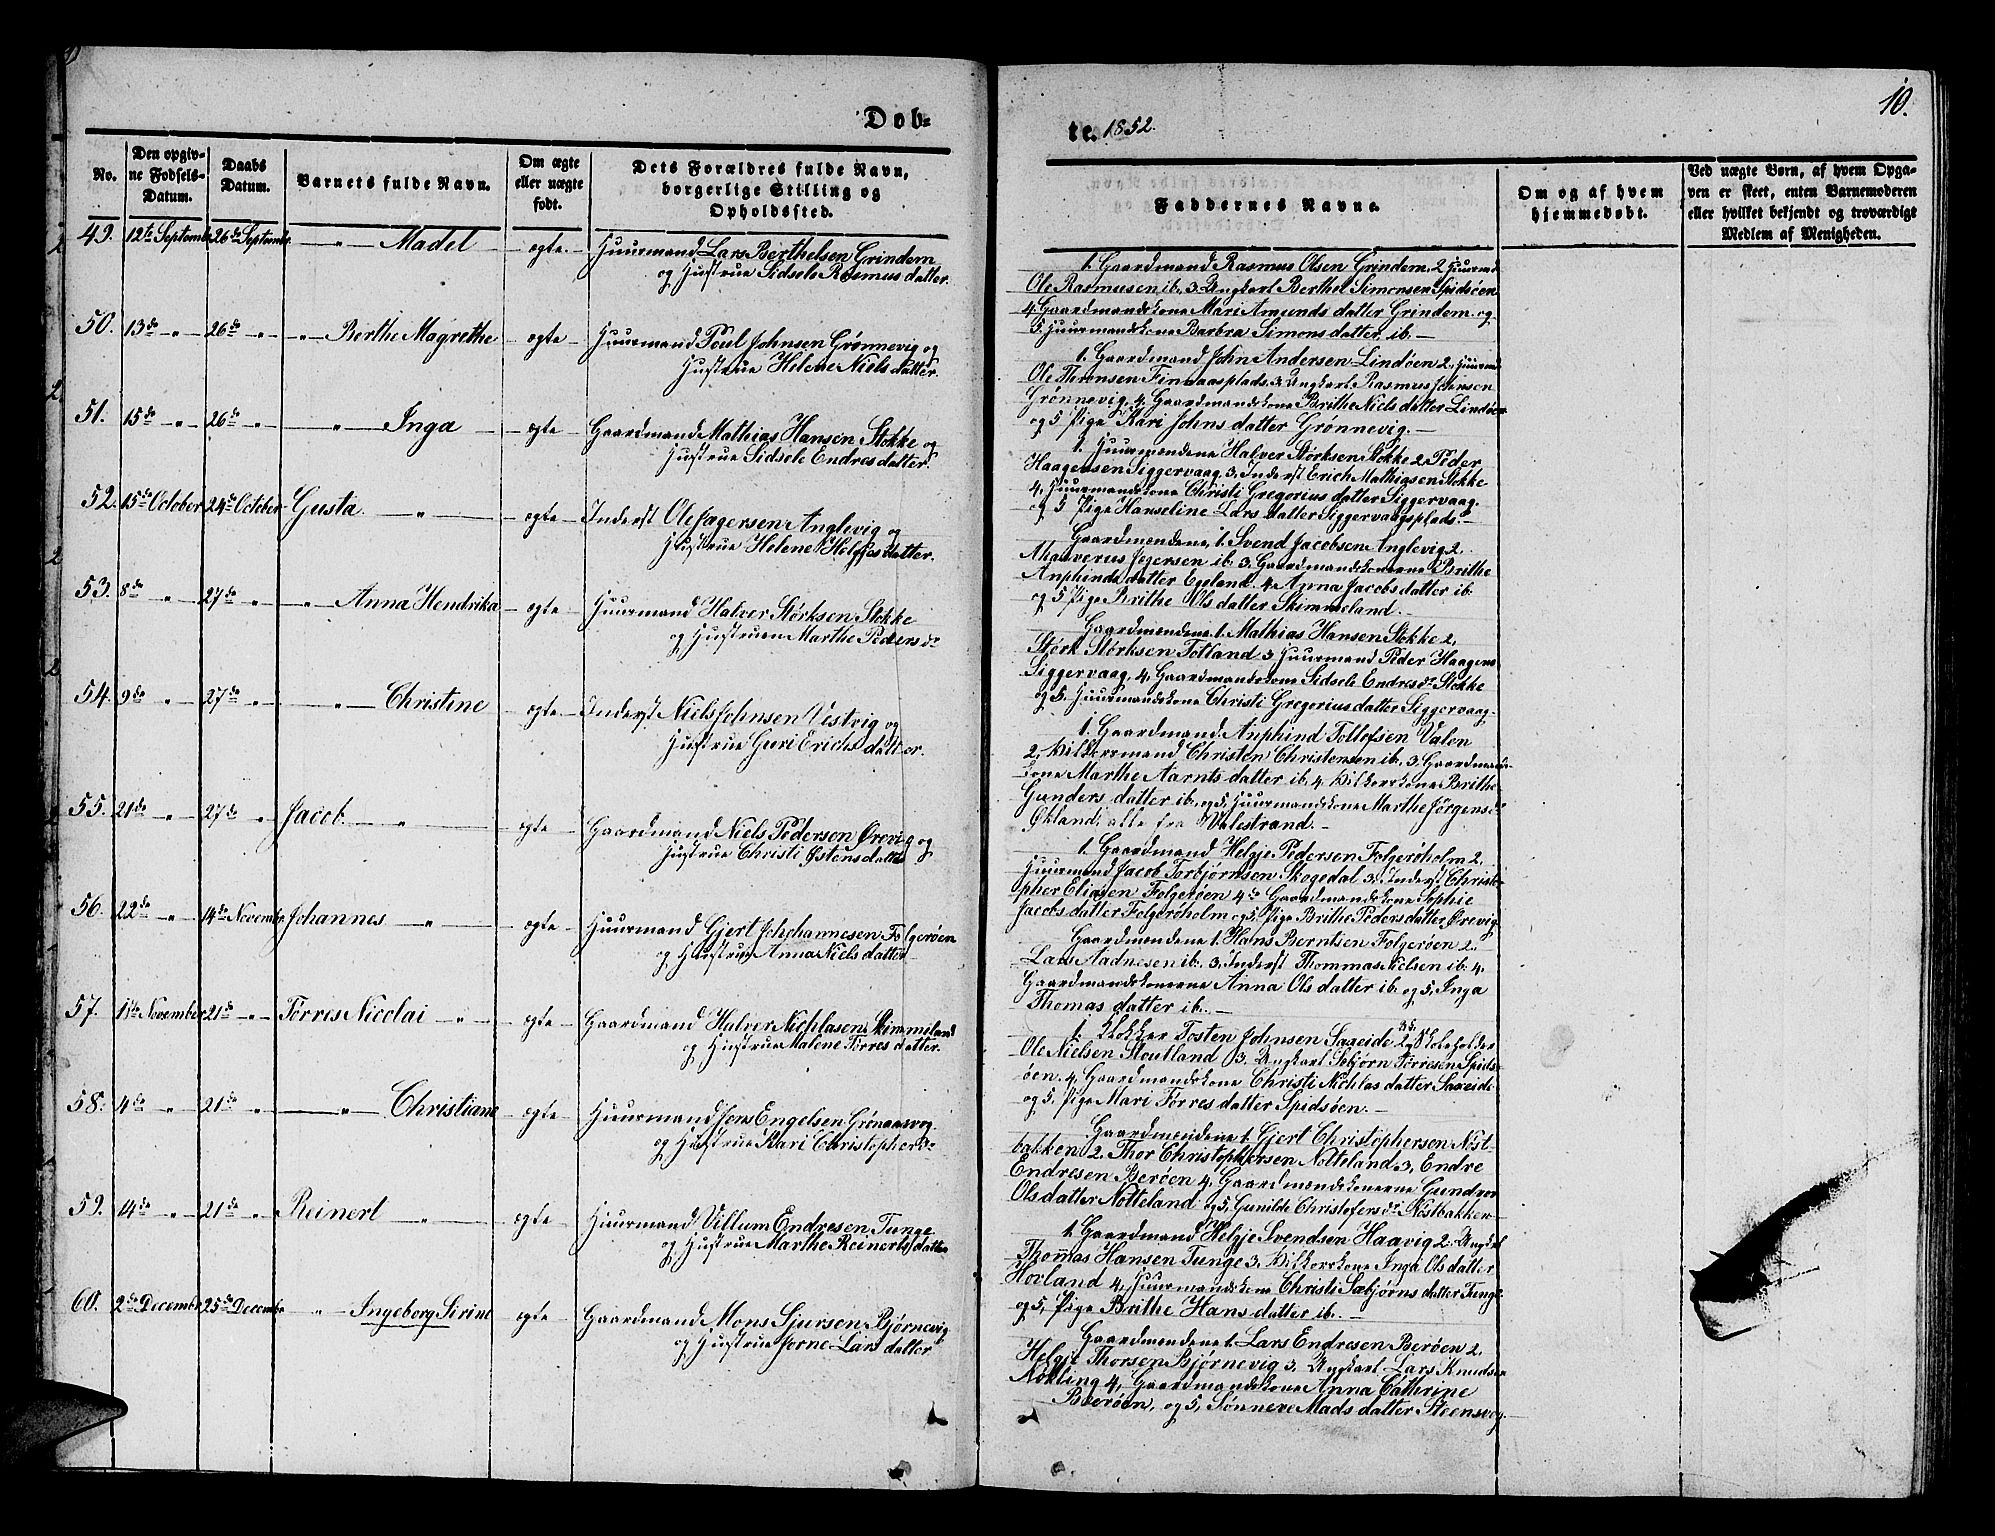 Døb-
te. 1852.
10.
No.
Den opgiv-
ne Fødsels-
Datum.
Daabs
Datum.
Barnets fulde Navn.
Om ægte
eller uægte
født.
Dets Forældres fulde Navn,
borgerlige Stilling og
Opholdssted.
Faddernes Navne.
Om og af hvem
hjemmedøbt.
Ved uægte Børn, af hvem Opga-
ven er skeet, enten Barnemoderen
eller hvilket bekjendt og troværdigt
Medlem af Menigheden.
49. 12te Septembr. 26de Septembr. " Madel ægte Huusmand Lars Berthelsen Grindem
og Hustrue Sidsele Rasmusdatter.
1. Gaardmand Rasmus Olsen Grindem, 2 Huusmd
Ole Rasmusen ib., 3. Ungkarl Berthel Simonsen Spidsøen
4. Gaardmandskone Mari Amundsdatter Grindem. og
5. Huusmandskone Barbra Simonsdatter ib. —
50. 13de " 26de " " Berthe Magrethe ægte Huusmand Poul Johnsen Grønnevig og
Hustrue Helene Nielsdatter.
1. Gaardmand John Andersen Lindøen 2. Huusmd
Ole Thronsen Finnaasplads, 3. Ungkarl Rasmus Johnsen
Grønnevig, 4. Gaardmandskone Brithe Nielsdatter Lindøen
og 5 Pige Kari Johnsdatter Grønnevig. —
51. 15de " 26de " " Inga ægte Gaardmand Mathias Hansen Stokke og
Hustrue Sidsele Endresdatter.
1. Huusmændene Halver Størksen Stokke 2. Peder
Haagensen Siggervaag, 3. Inderst Erich Mathiasen Stokke
4. Huusmandskone Christi Gregoriusdatter Siggervaag
og 5 Pige Hanseline Larsdatter Siggervaagsplads. —
52. 15de October 24de October Gusta " ægte Inderst Ole Jagersen Anglevig og
Hustrue Helene Helgesdatter.
Gaardmændene, 1. Svend Jacobsen Anglevig 2.
Jegersen ib. 3. Gaardmandskonerne Brithe
Anphindsdatter Egeland. 4. Anna Jacobsdatter ib.
og 5 Pige Brithe Olsdatter Skimmeland. —
53. 8de " 27de " " Anna Hendrika ægte Huusmand Halver Størksen Stokke
og Hustruen Marthe Pedersdr
Gaardmændene 1. Mathias Hansen Stokke 2.
Størk Størksen Totland 3 Huusmand Peder Haagens
Siggervaag, 4, Gaardmandskone Sidsele Endresdr Stokke
og 5. Huusmandskone Christi Gregoriusdatter Siggervaag.
54. 9de " 27de " " Christine ægte Inderst Niels Johnsen Vestvig og
Hustrue Guri Erichsdatter.
1. Gaardmand Anphind Tollefsen Valen
2, Vilkorsmand Christen Christensen ib., 3. Gaardmands-
kone Marthe Aarntsdatter ib. 4. Vilkorskone Brithe
Gundersdatter ib. og 5, Huusmandskone Marthe Jørgensdr
Økland, alle fra Valestrand. —
55. 21de " 27de " Jacob " ægte Gaardmand Niels Pedersen Ørevig og
Hustrue Christi Østensdatter
1. Gaardmand Helgje Pedersen Folgerøholm 2.
Huusmand Jacob Torbjørnsen Skogedal 3. Inderst Christo-
pher Eliasen Folgerøen 4de Gaardmandskone Sophie
Jacobsdatter Folgerøholm og 5. Pige Brithe Pedersdatter Ørevig
56. 22de " 14de Novembr. Johannes " ægte Huusmand Gjert Johchannesen Folgerøen
og Hustrue Anna Nielsdatter
Gaardmændene 1. Hans Berntsen Folgerøen 2.
Lars Aadnesen ib. 3. Inderst Thommas Nielsen ib. 4.
Gaardmandskonerne Anna Olsdatter ib. og 5, Inga
Thomasdatter ib. —
57. 1ste November 21de " Tørris Nicolai " ægte Gaardmand Halver Nichlasen Skimmeland
og Hustrue Malene Tørresdatter.
1. Klokker Tosten Johnsen Saxeide 2. Skoleholder
Ole Nielsen Stoutland 3. Ungkarl Sæbjørn Tørresen Spids-
øen. 4. Gaardmandskone Christi Nichlasdatter Saxeide
og 5. Pige Mari Tørresdatter Spidsøen. —
58. 4de " 21de " " Christiane ægte Huusmand Jens Engelsen Grønaasvog.
og Hustrue Kari Christophersdr
Gaardmændene 1. Gjert Christophersen Nøst-
bakken 2. Thor Christophersen Notteland 3. Endre
Endresen Berøen 4. Gaardmandskonerne Gundvor
Olsdatter Notteland og 5, Gunilde Christofersdr Nøstbakken
59. 14de " 21de " Reinert " ægte Huusmand Villum Endresen Tunge
og Hustrue Marthe Reinertsdatter
1. Gaardmand Helgje Svendsen Haavig 2. Ungkarl
Thomas Hansen Tunge 3. Vilkorskone Inga Olsdatter
Hovland 4, Huusmandskone Christi Sæbjørnsdatter Tunge
og 5, Pige Brithe Hansdatter ib. —
60. 2den Decembr. 25de Decembr. " Ingeborg Sirine ægte Gaardmand Mons Sjursen Bjørnevig
og Hustrue Jorne Larsdatter
Gaardmændene 1. Lars Endresen Berøen 2.
Helgje Thorsen Bjørnevig 3. Ungkarl Lars Knudsen
Nøkling 4, Gaardmandskone Anna Cathrine
Berøen, og 5, Sønneve Madsdatter Steensvog.